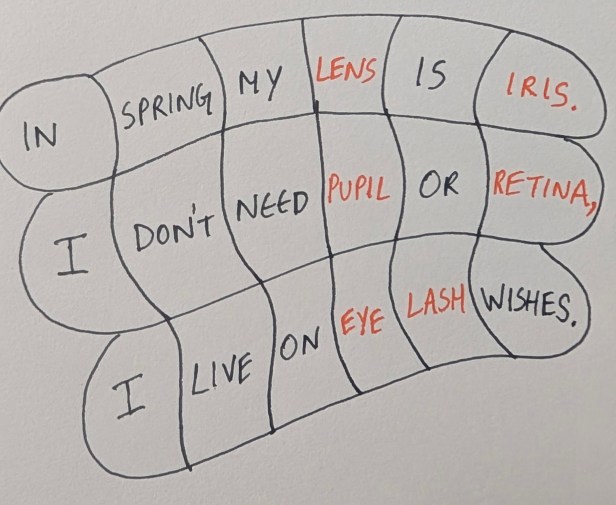 IN SPRING MY LENS IS IRIS.
I DON'T NEED PUPIL OR RETINA,
I LIVE ON EYE LASH WISHES.